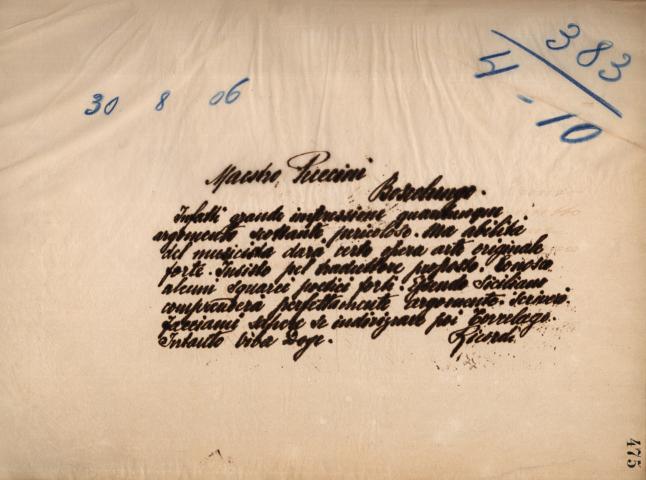 383
4-10
30 8 06
Maestro Puccini
Boscolungo.
Infatti grande impressione quantunque
argomento scottante pericoloso. Ma abilità
del musicista darà certo opera arte originale
forte. Insisto pel traduttore proposto. Conosco
alcuni squarci poetici forti. Essendo Siciliano
comprenderà perfettamente l'argomento. Scrivovi.
Facciami sapere se indirizzare poi Torrelago.
Intanto viva Doge.
Ricordi
475